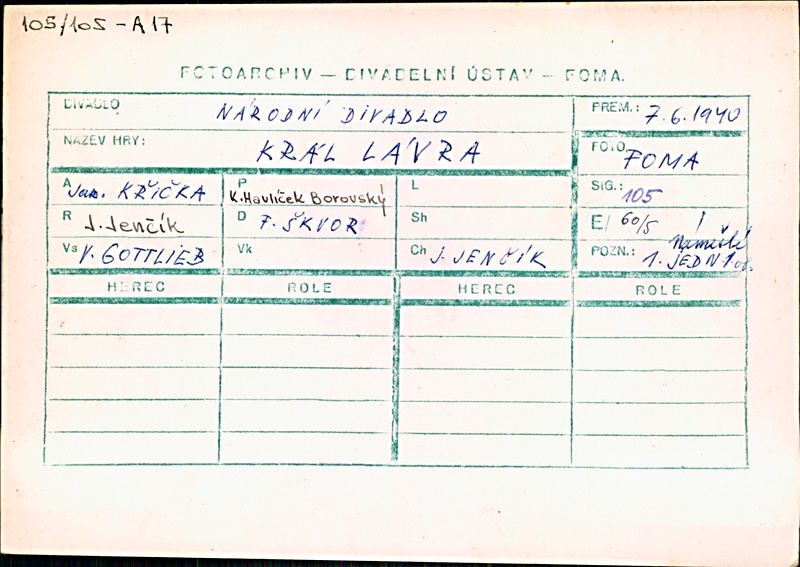 105/105 - A 17
FOTOARCHIV — DIVADELNÍ ÚSTAV — FOMA.
DIVADLO NÁRODNÍ DIVADLO
PREM.: 7.6.1940
NÁZEV HRY: KRÁL LÁVRA
FOTO FOMA
A Jar. KŘIČKA
P K. Havlíček Borovský
L
SIG.: 105
R J. Jenčík
D F. ŠKVOR
Sh
E/ 60/5
Vs V. GOTTLIEB
Vk
Ch J. JENČÍK
POZN.: 1. JEDN 1 ob.
Náměstí
HEREC ROLE HEREC ROLE